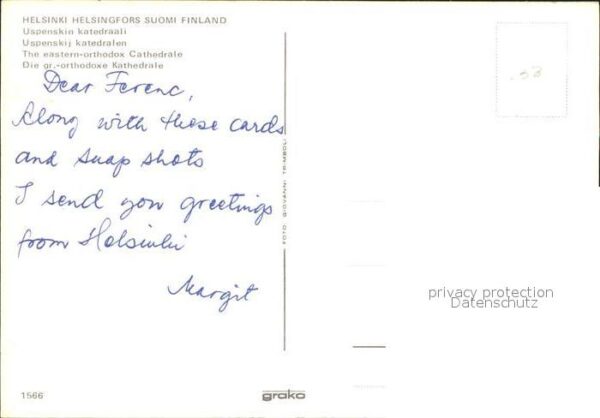 HELSINKI HELSINGFORS SUOMI FINLAND
Uspenskin katedraali
Uspenskij katedralen
The eastern-orthodox Cathedrale
Die gr.-orthodoxe Kathedrale
Dear Ferenc,
Along with these cards
and snap shots
I send you greetings
from Helsinki
Margit
FOTO: GIOVANNI TRIMBOLI
.50
privacy protection
Datenschutz
1566
grako